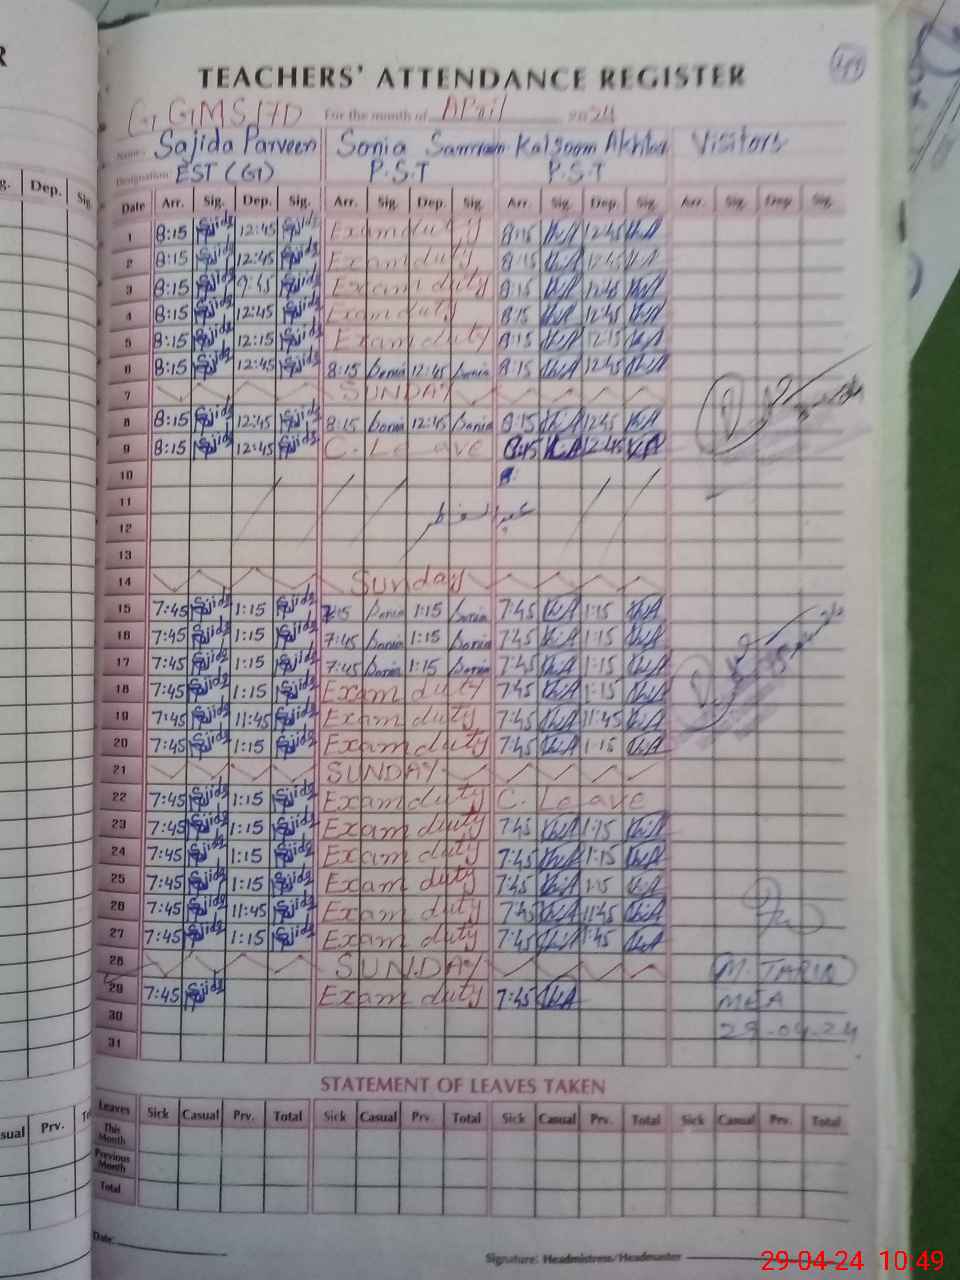 R
TEACHERS' ATTENDANCE REGISTER
G.GMS 17D For the month of April 2024
Name: Sajida Parveen Sonia Samreen Kalsoom Akhtar Visitors
Designation: EST (G) P.S.T P.S.T
g. Dep. Sig.
Date Arr. Sig. Dep. Sig. Arr. Sig. Dep. Sig. Arr. Sig. Dep. Sig. Arr. Sig. Dep. Sig.
1 8:15 Sajida 12:45 Sajida Exam duty 8:15 KA 12:45 KA
2 8:15 Sajida 12:45 Sajida Exam duty 8:15 KA 12:45 KA
3 8:15 Sajida 9:45 Sajida Exam duty 8:15 KA 12:45 KA
4 8:15 Sajida 12:45 Sajida Exam duty 8:15 KA 12:45 KA
5 8:15 Sajida 12:15 Sajida Exam duty 8:15 KA 12:15 KA
6 8:15 Sajida 12:45 Sajida 8:15 Sonia 12:45 Sonia 8:15 KA 12:45 KA
7 SUNDAY
8 8:15 Sajida 12:45 Sajida 8:15 Sonia 12:45 Sonia 8:15 KA 12:45 KA
9 8:15 Sajida 12:45 Sajida C. Leave 8:15 KA 12:45 KA
10 8:
11
12 عیدالفطر
13
14 Sunday
15 7:45 Sajida 1:15 Sajida 7:15 Sonia 1:15 Sonia 7:45 KA 1:15 KA
16 7:45 Sajida 1:15 Sajida 7:45 Sonia 1:15 Sonia 7:45 KA 1:15 KA
17 7:45 Sajida 1:15 Sajida 7:45 Sonia 1:15 Sonia 7:45 KA 1:15 KA
18 7:45 Sajida 1:15 Sajida Exam duty 7:45 KA 1:15 KA
19 7:45 Sajida 11:45 Sajida Exam duty 7:45 KA 11:45 KA
20 7:45 Sajida 1:15 Sajida Exam duty 7:45 KA 1:15 KA
21 SUNDAY
22 7:45 Sajida 1:15 Sajida Exam duty C. Leave
23 7:45 Sajida 1:15 Sajida Exam duty 7:45 KA 1:15 KA
24 7:45 Sajida 1:15 Sajida Exam duty 7:45 KA 1:15 KA
25 7:45 Sajida 1:15 Sajida Exam duty 7:45 KA 1:15 KA
26 7:45 Sajida 11:45 Sajida Exam duty 7:45 KA 11:45 KA
27 7:45 Sajida 1:15 Sajida Exam duty 7:45 KA 1:45 KA
28 SUNDAY M. TARIQ
29 7:45 Sajida Exam duty 7:45 KA MEA
30 29-04-24
31
STATEMENT OF LEAVES TAKEN
Leaves Sick Casual Prv. Total Sick Casual Prv. Total Sick Casual Prv. Total Sick Casual Prv. Total
sual Prv.
This Month
Previous Month
Total
Date:
Signature: Headmistress/Headmaster
29-04-24 10:49